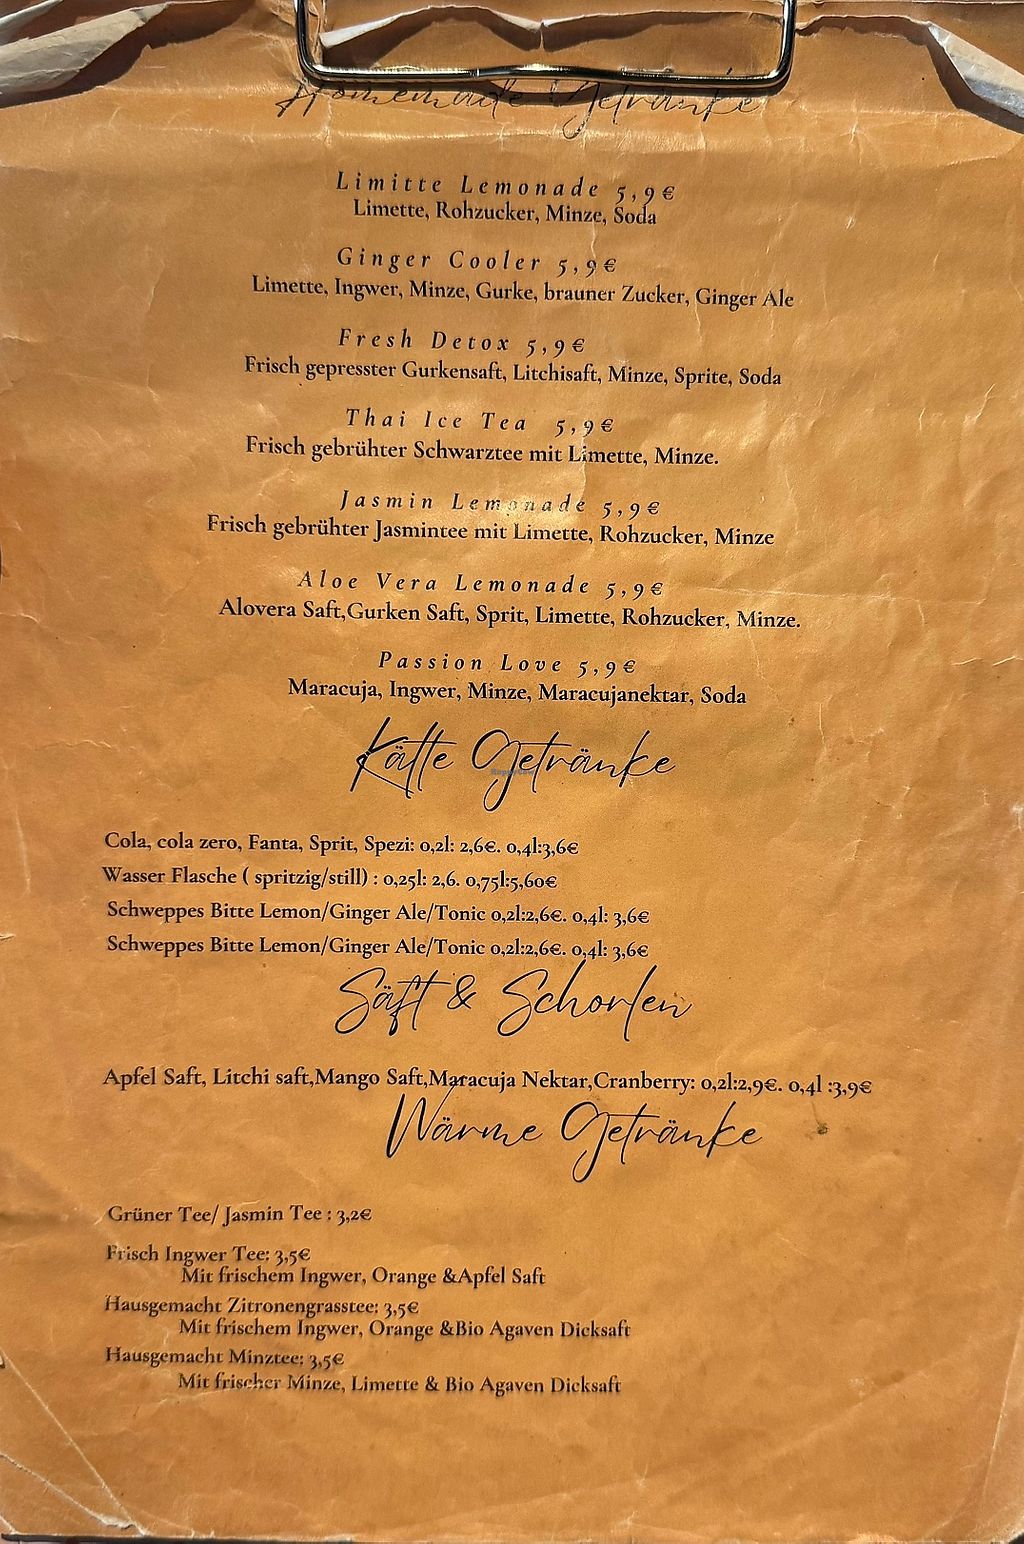 Homemade Getränke
Limitte Lemonade 5,9€
Limette, Rohzucker, Minze, Soda
Ginger Cooler 5,9€
Limette, Ingwer, Minze, Gurke, brauner Zucker, Ginger Ale
Fresh Detox 5,9€
Frisch gepresster Gurkensaft, Litchisaft, Minze, Sprite, Soda
Thai Ice Tea 5,9€
Frisch gebrühter Schwarztee mit Limette, Minze.
Jasmin Lemonade 5,9€
Frisch gebrühter Jasmintee mit Limette, Rohzucker, Minze
Aloe Vera Lemonade 5,9€
Alovera Saft,Gurken Saft, Sprit, Limette, Rohzucker, Minze.
Passion Love 5,9€
Maracuja, Ingwer, Minze, Maracujanektar, Soda
Kälte Getränke
HappyCow
Cola, cola zero, Fanta, Sprit, Spezi: 0,2l: 2,6€. 0,4l:3,6€
Wasser Flasche ( spritzig/still) : 0,25l: 2,6. 0,75l:5,60€
Schweppes Bitte Lemon/Ginger Ale/Tonic 0,2l:2,6€. 0,4l: 3,6€
Schweppes Bitte Lemon/Ginger Ale/Tonic 0,2l:2,6€. 0,4l: 3,6€
Säft & Schorlen
Apfel Saft, Litchi saft,Mango Saft,Maracuja Nektar,Cranberry: 0,2l:2,9€. 0,4l :3,9€
Wärme Getränke
Grüner Tee/ Jasmin Tee : 3,2€
Frisch Ingwer Tee: 3,5€
Mit frischem Ingwer, Orange &Apfel Saft
Hausgemacht Zitronengrasstee: 3,5€
Mit frischem Ingwer, Orange &Bio Agaven Dicksaft
Hausgemacht Minztee: 3,5€
Mit frischer Minze, Limette & Bio Agaven Dicksaft